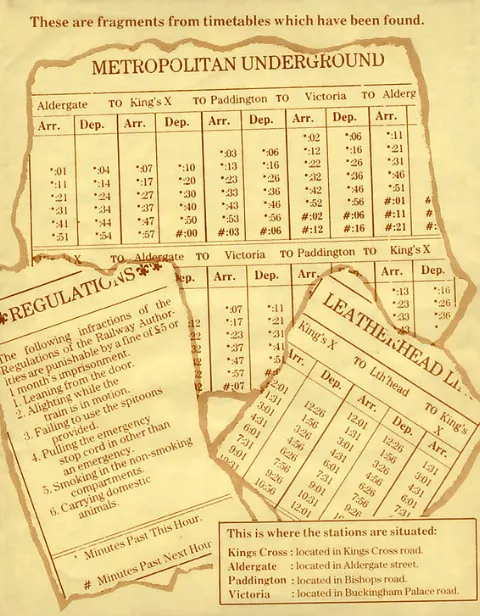 These are fragments from timetables which have been found.
METROPOLITAN UNDERGROUND
Aldergate TO King's X TO Paddington TO Victoria TO Alderg
Arr. Dep. Arr. Dep. Arr. Dep. Arr. Dep. Arr.
*:02 *:06 *:11
*:03 *:06 *:12 *:16 *:21
*:01 *:04 *:07 *:10 *:13 *:16 *:22 *:26 *:31
*:11 *:14 *:17 *:20 *:23 *:26 *:32 *:36 *:46
*:21 *:24 *:27 *:30 *:33 *:36 *:42 *:46 *:51
*:31 *:34 *:37 *:40 *:43 *:46 *:52 *:56 #:01 #
*:41 *:44 *:47 *:50 *:53 *:56 #:02 #:06 #:11 #
*:51 *:54 *:57 #:00 #:03 #:06 #:12 #:16 #:21 #:
X TO Aldergate TO Victoria TO Paddington TO King's X
Arr. Dep. Arr. Dep.
*:13 *:16
*:07 *:11 *:23 *:26
:12 *:17 *:21 *:33 *:36
:22 *:23 *:31
:32 *:37 *:41
*:47 *:51
*:57
#:07
*REGULATIONS**
The following infractions of the
Regulations of the Railway Author-
ities are punishable by a fine of £5 or
month's imprisonment.
1. Leaning from the door.
2. Alighting while the
train is in motion.
3. Failing to use the spitoons
provided.
4. Pulling the emergency
stop cord in other than
an emergency.
5. Smoking in the non-smoking
compartments.
6. Carrying domestic
animals.
* Minutes Past This Hour.
# Minutes Past Next Hour
LEATHERHEAD LI
King's X TO Lth'head TO King's
Arr. Dep. Arr. Dep. Arr.
12:01 12:26 12:01 12:26 1:31
1:31 1:56 1:31 1:56 3:01
3:01 3:26 3:01 3:26 4:31
4:31 4:56 4:31 4:56 6:01
6:01 6:26 6:01 6:26 7:31
7:31 7:56 7:31 7:56
9:01 9:26 9:01
10:31 10:56 10:31
This is where the stations are situated:
Kings Cross : located in Kings Cross road.
Aldergate : located in Aldergate street.
Paddington : located in Bishops road.
Victoria : located in Buckingham Palace road.